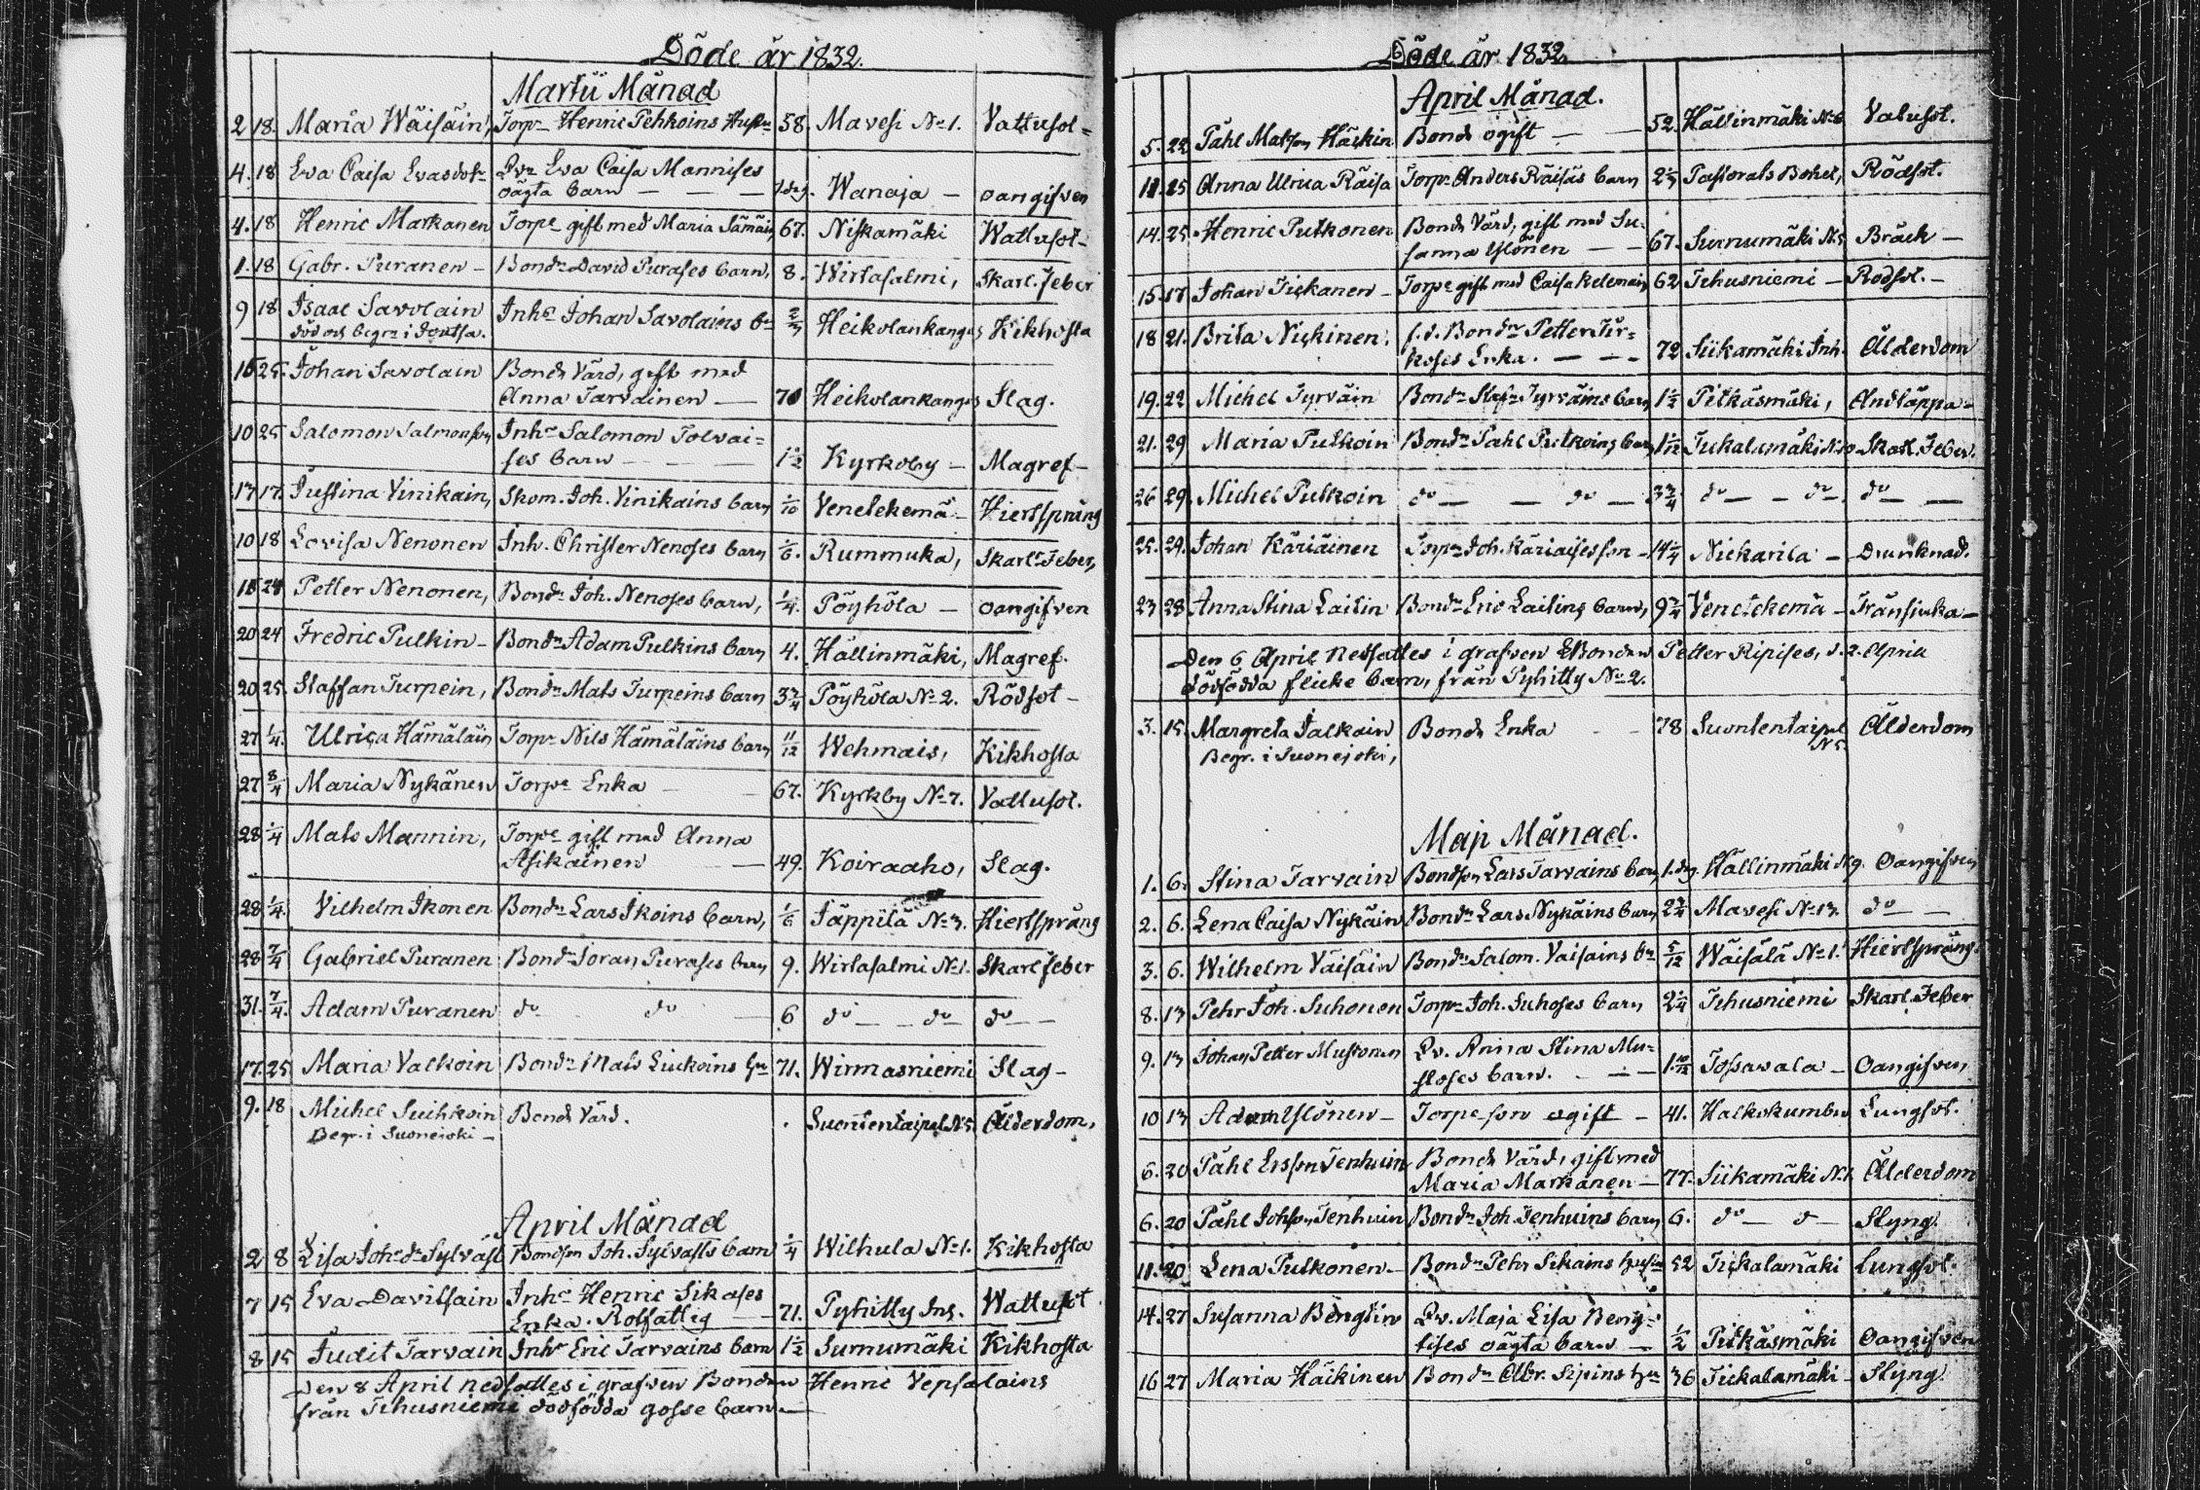 Döde år 1832.
Martii Månad
2 18. Maria Wäisäin, Torp. Henric Pehkoins Hustru 58. Mavesi No 1. Vattusot
4. 18 Eva Caisa Evasdotr Qvn Eva Caisa Mannises
oägta barn — — 1 dag. Wanaja — oangifven
4. 18 Henric Markanen Torpr gift med Maria Jämäin 67. Niskamäki Wattusot
1. 18 Gabr. Puranen — Bondn David Purases barn, 8. Wirtasalmi, Skarl. Feber
9 18 Isaac Savolain Inhs Johan Savolains bn 2/3 Heikolankangas Kikhosta
död och begrn i Joutsa.
15 25. Johan Savolain Bonde Värd, gift med
Anna Tarvainen — 70 Heikolankangas Slag.
10 25 Salomon Salmonsson Inhs Salomon Tolvai=
ses barn — — 1 1/2 Kyrkoby — Magref —
17 17. Justina Vinikain, Skom. Joh. Vinikains barn 1/10 Venetekemä — Hiertsprång
10 18 Lovisa Nenonen Inh. Christer Nenoses barn 1/6. Rummuka, Skarl. Feber,
18 24 Petter Nenonen, Bondn Joh. Nenoses barn, 1/4. Pöyhölä — oangifven
20 24 Fredric Pulkin — Bondn Adam Pulkins barn 4. Hällinmäki, Magref.
20 25. Staffan Turpein, Bondn Mats Turpeins barn 3 3/4 Pöyhölä No 2. Rödsot —
27 1/4. Ulrica Hämäläin Torpr Nils Hämäläins barn 11/12 Wehmais, Kikhosta
27 8/4 Maria Nykänen Torpr Enka — 67. Kyrkby No 7. Vattusot.
28 1/4 Mats Mannin, Torpr gift med Anna
Asikainen — 49. Koiraaho, Slag.
28 1/4. Vilhelm Ikonen Bondn Lars Ikoins barn, 1/6 Jäppilä No 3. Hiertsprång
28 7/4 Gabriel Puranen Bondn Joran Purases barn 9. Wirtasalmi No 1. Skarl feber
31. 7/4. Adam Puranen do do 6 do — — do do —
17. 25 Maria Valkoin Bondn Mats Liukoins hu 71. Wirmasniemi Slag —
9. 18 Michel Suihkoin Bonde Värd. Suontentaipal No 5. Ålderdom,
Begr. i Suonejoki —
April Månad
2 8 Lisa Johs dr Sylväst Bondson Joh. Sylvasts barn 1/4 Wilhula No 1. Kikhosta
7 15 Eva Davitsain Inhs Henric Sikases
Enka. Rotfattig — 71. Pyhitty Ins. Wattusot
8 15 Judit Tarvain Inhs Eric Tarvains barn 1 1/2 Surnumäki Kikhosta
den 8 April nedsattes i grafven Bonden Henric Vepsalains
från Tihusniemi dödfödda gosse barn —
Döde år 1832.
April Månad.
5. 22 Påhl Matson Häikin Bonde ogift — — 52. Hällinmäki No 6 Vatusot.
11. 25 Anna Ulrica Räisä Torpr Anders Räisäs barn Pastorats Bohlet, Rödsot.
14. 25 Henric Putkonen Bonde Värd, gift med Su=
sanna Ylönen — — 67. Surnumäki No 5 Bräck —
15. 17 Johan Tickanen — Torpr gift med Caisa 62 Tihusniemi — Rödsot. —
18 21. Brita Nickinen. f. d. Bondn Petter Tir=
koses Enka. — — 72 Siikamäki Inh. Ålderdom
19. 22 Michel Tyrväin Bondn Stafn Tyrväins barn 1 1/2 Pitkäsmäki, Andtäppa —
21. 29 Maria Putkoin Bondn Påhl Putkoins barn Skarl. Feber.
26 29. Michel Putkoin do — — do — 3 3/4 do — — do — do — —
25. 29. Johan Käriäinen Torpr Joh. Käriäises son — 14 1/4 Niekarila — Drunknad.
23 28 Anna Stina Laitin Bondn Eric Laitins barn, 9 3/4 Venetekemä — Trånsiuka —
Den 6 April nedsattes i grafven Bonden Petter Ripises, d. 2. April
dödfödda flicke barn, från Pyhitty No 2.
3. 15. Margreta Jalkain Bonde Enka 78 Suontentaipal Ålderdom
No 5
Begr. i Suonejoki,
Maji Månad.
1. 6. Stina Tarvain Bondson Lars Tarvains barn, 1. dag. Hällinmäki No 9. Oangifven
2. 6. Lena Caisa Nykäin Bondn Lars Nykäins barn 2 3/4 Mavesi No 13. do — —
3. 6. Wilhelm Väisäin Bondn Salom. Vaisains bn 5/12 Wäisälä No 1. Hiertsprång.
8. 13 Pehr Joh. Suhonen Torpr Joh. Suhoses barn 2 1/4 Tihusniemi Skarl. Feber
9. 13 Johan Petter Mustonen Qv. Anna Stina Mu=
stoses barn. — — 1 10/12 Tossavala — Oangifven
10 13 Adam Ylönen — Torpe son ogift — 41. Halkokumbu Lungsot.
6. 20 Påhl Ersson Jenhuin Bonde Värd, gift med
Maria Markanen — 77. Siikamäki No 1. Ålderdom
6. 20 Påhl Johson Jenhuin Bondn Joh. Jenhuins barn 6. do — do — Styng.
11. 20 Lena Putkonen — Bondn Pehr Sikains hustru 52 Tickalamäki Lungsot.
14. 27 Susanna Bengtin Qv. Maja Lisa Beng=
tises oägta barn — 1/2 Pitkäsmäki Oangifven
16 27 Maria Häikinen Bondn Abr. Sipins hu 36 Tickalamäki — Styng.